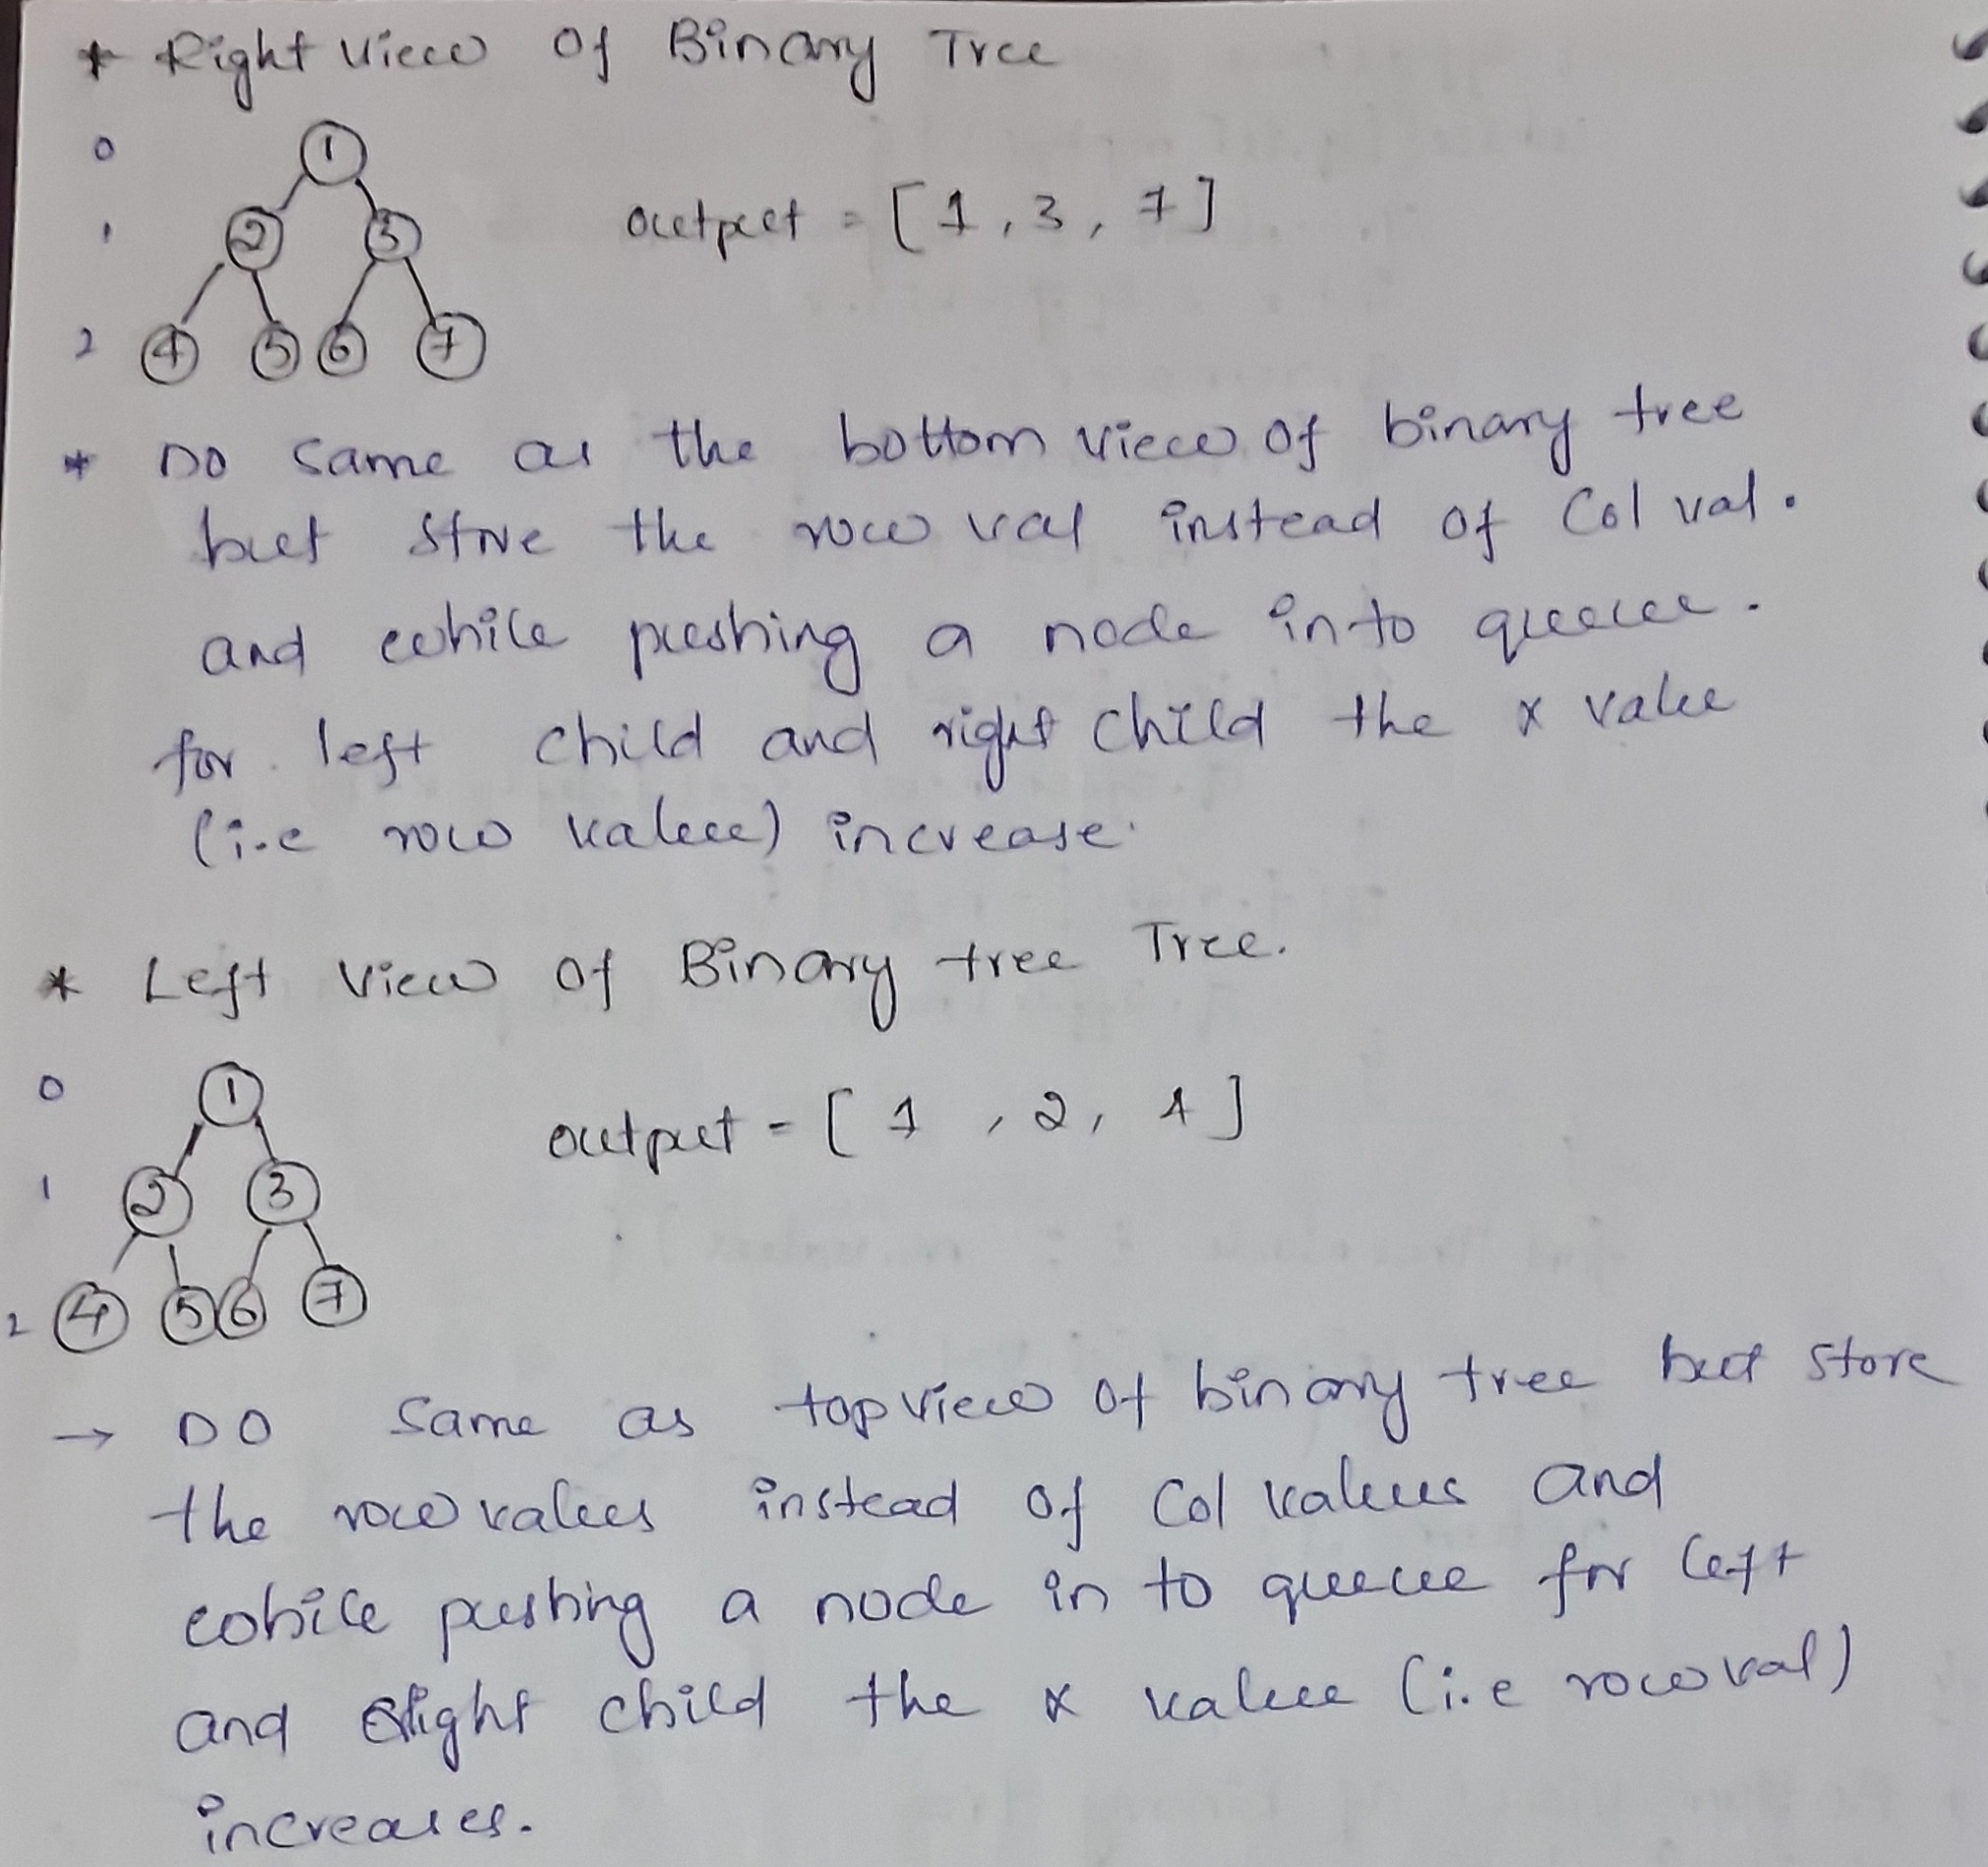 * Right view of Binary Tree
0 1
1 2 3 output = [1, 3, 7]
2 4 5 6 7
* DO same as the bottom view of binary tree
but store the row val instead of Col val.
and while pushing a node into queue.
for left child and right child the x value
(i.e row value) increase.
* Left View Of Binary tree Tree.
0 1
output = [1, 2, 4]
1 2 3
2 4 5 6 7
→ DO same as top view of binary tree but store
the row values instead of Col values and
while pushing a node in to queue for left
and right child the x value (i.e row val)
increases.